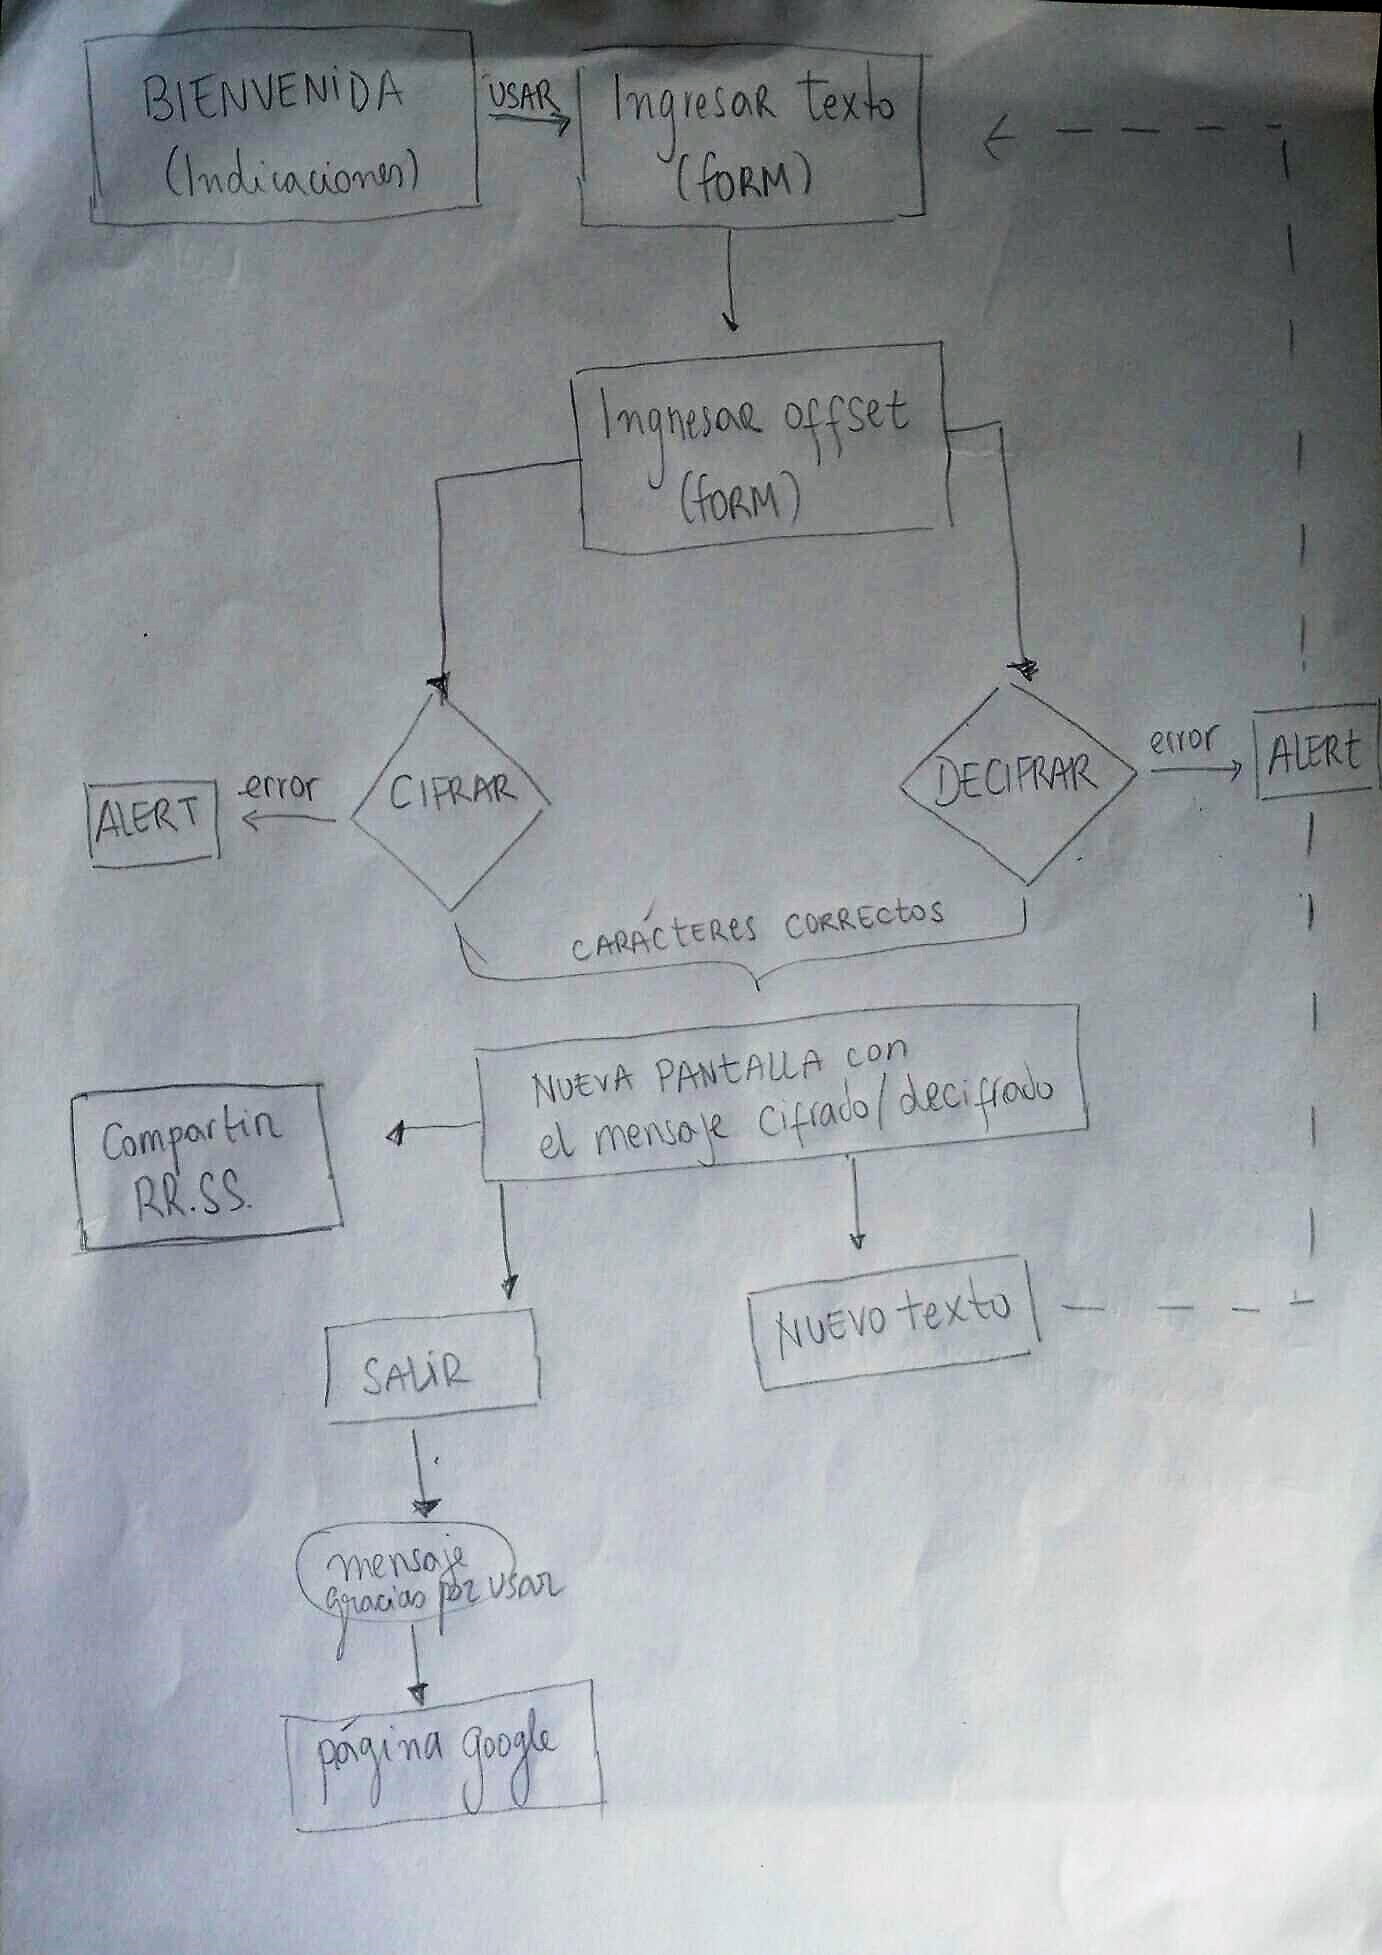 BIENVENIDA
(Indicaciones)
USAR
Ingresar texto
(form)
Ingresar offset
(form)
CIFRAR
error
ALERT
DECIFRAR
error
ALERt
CARÁCteRes CORRECtos
NUEVA PANtALLA con
el mensaje cifrado/decifrado
Compartir
RR.SS.
SALIR
NUEVO texto
mensaje
gracias por usar
página google